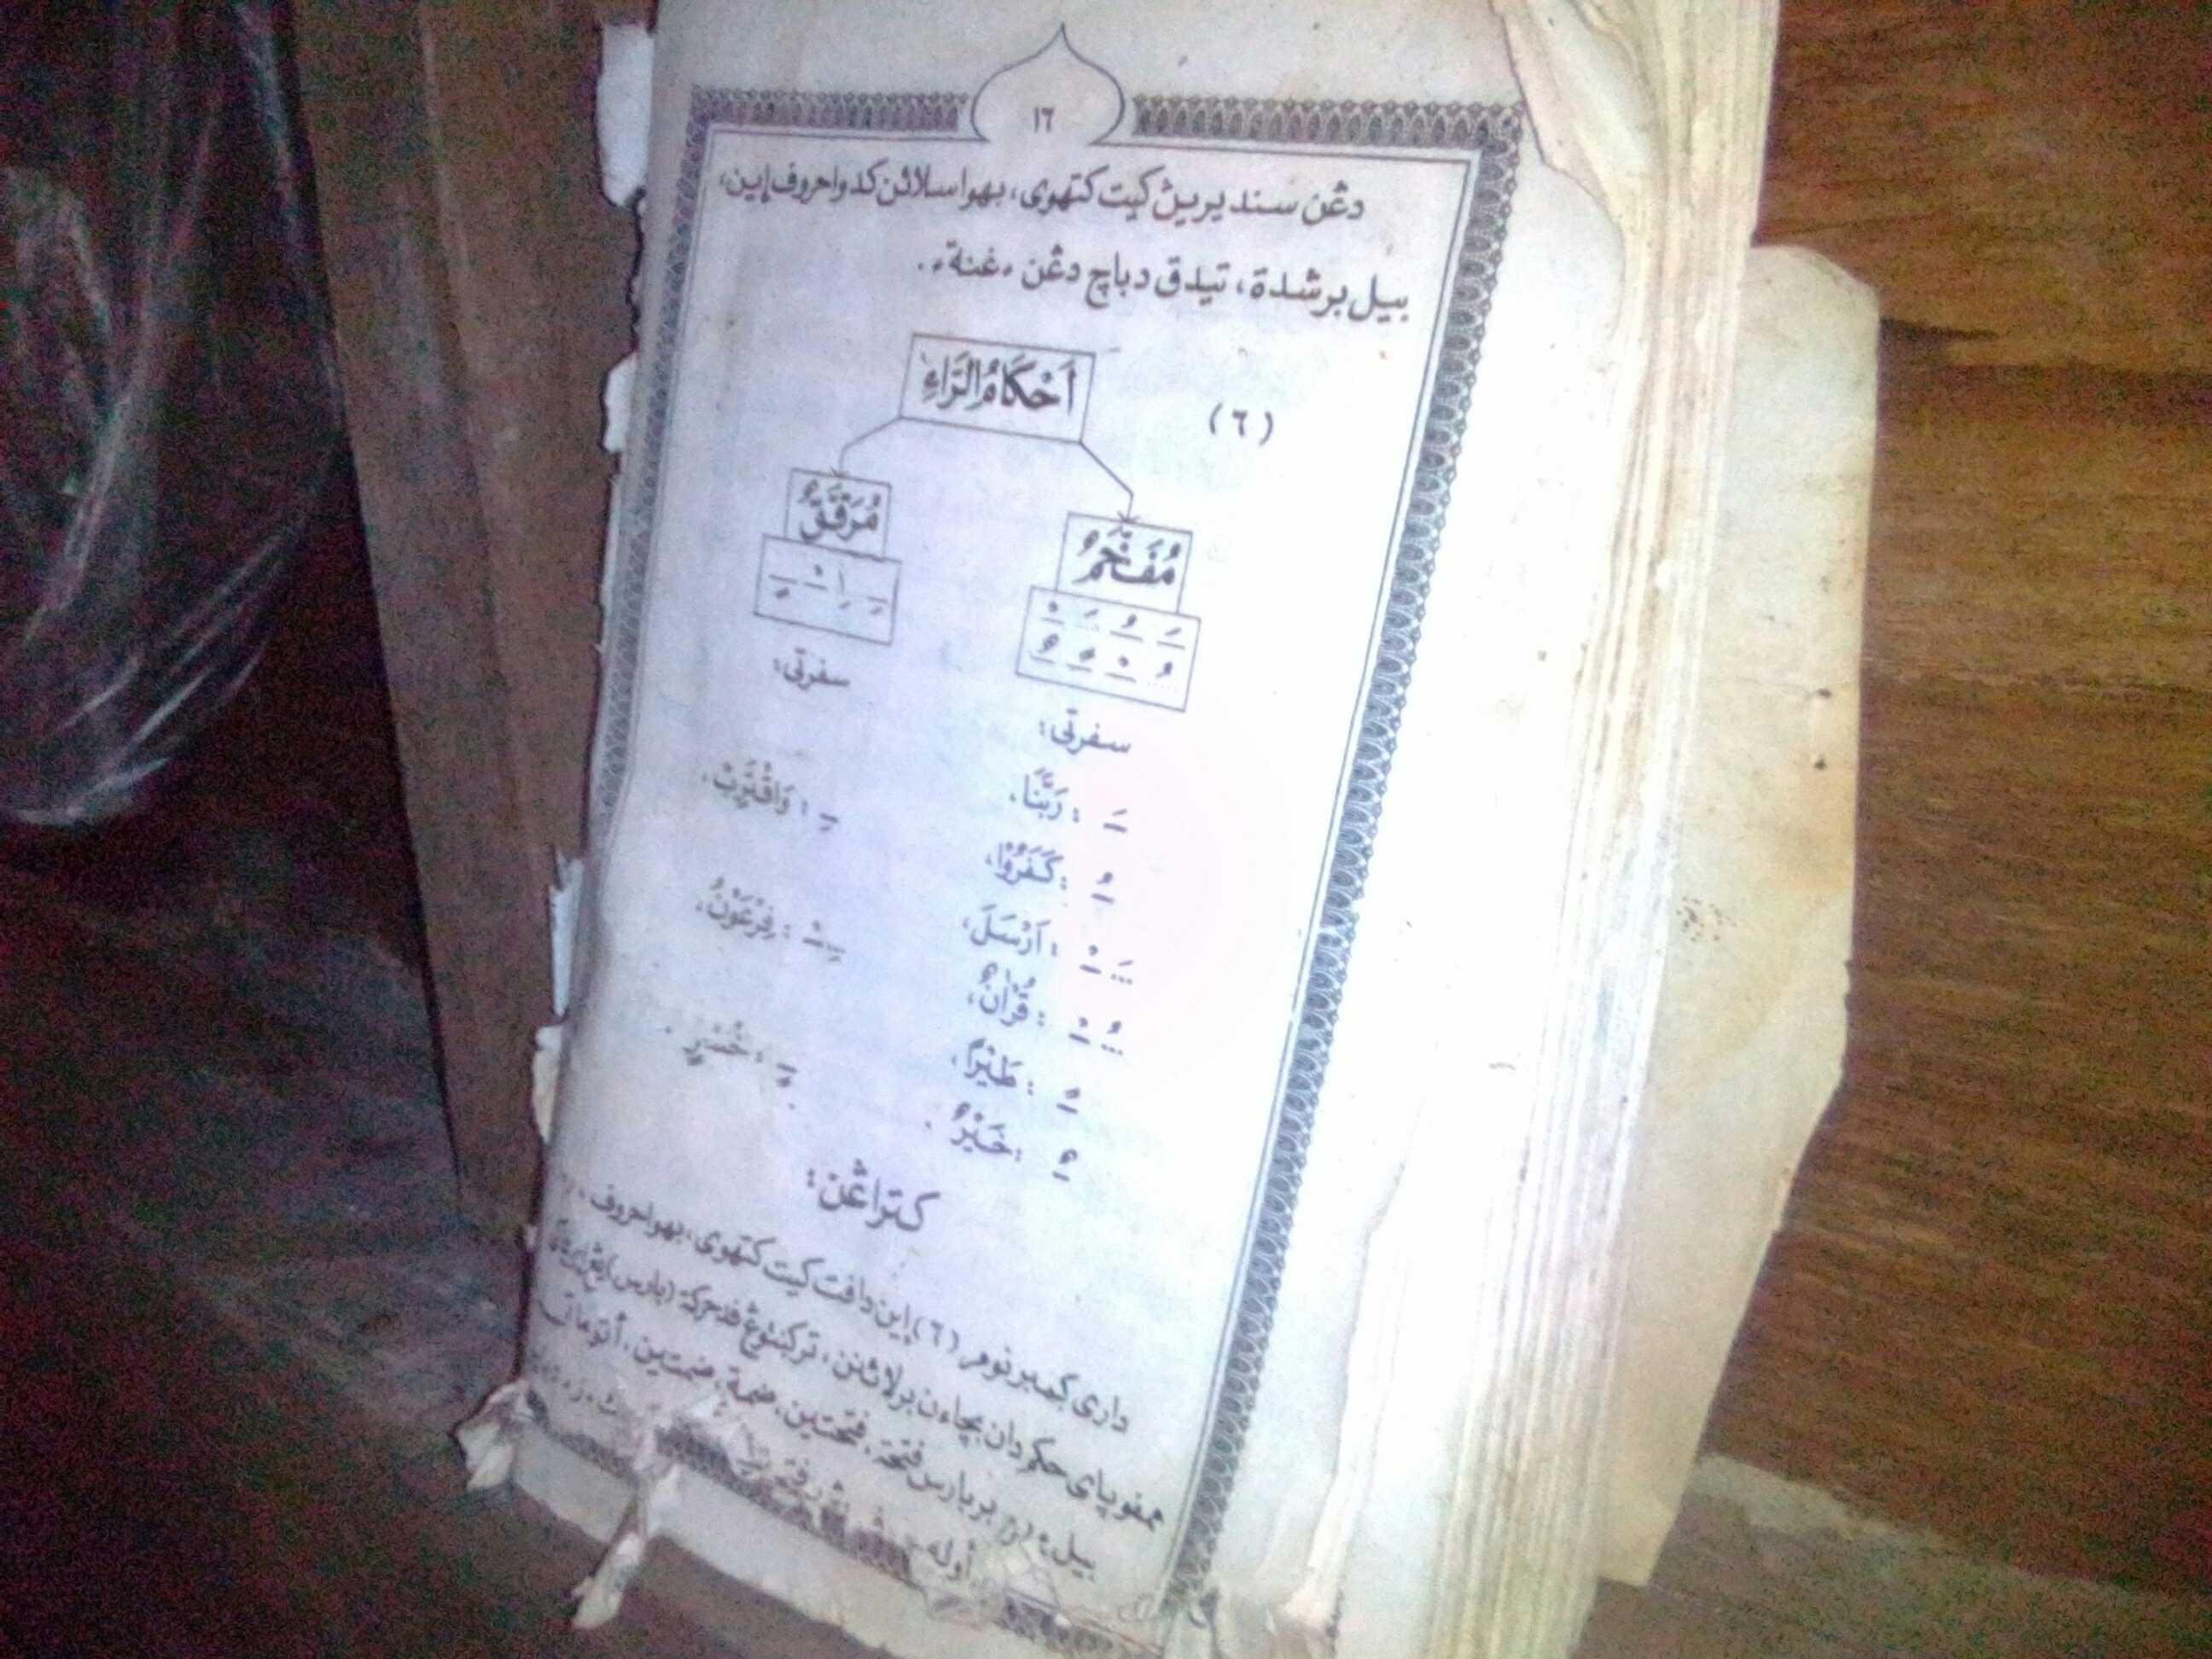 ١٦
دڠن سنديريڽ كيت كتهوي، بهوا سلائن كدوا حروف إين،
بيل برشدة، تيدق دباچ دڠن «غنة».
(٦)
أَحْكَامُ الرَّاءِ
مُفَخَّمٌ
مُرَقَّقٌ
سفرتي:
سفرتي:
ـَ : رَبَّنَا،
ـِ : وَاقْتَرِبْ،
ـُ : كَفَرُوْا،
ـَ ـْ : اَرْسَلَ،
ـِ ـْ : فِرْعَوْنُ،
ـُ ـْ : قُرْاٰنٌ،
ـً : طَيْرًا،
ـٍ : خُسْرٍ .
ـٌ : خَيْرٌ .
كتراڠن:
داري كمبر نومر (٦) إين دافت كيت كتهوي، بهوا حروف
ممفوپاي حكم دان بچاءن برلائنن، ترڬنتوڠ فد حركة (بارس)
بيل: بربارس فتحة، فتحتين، ضمة، ضمتين، أتوماتي
أوله